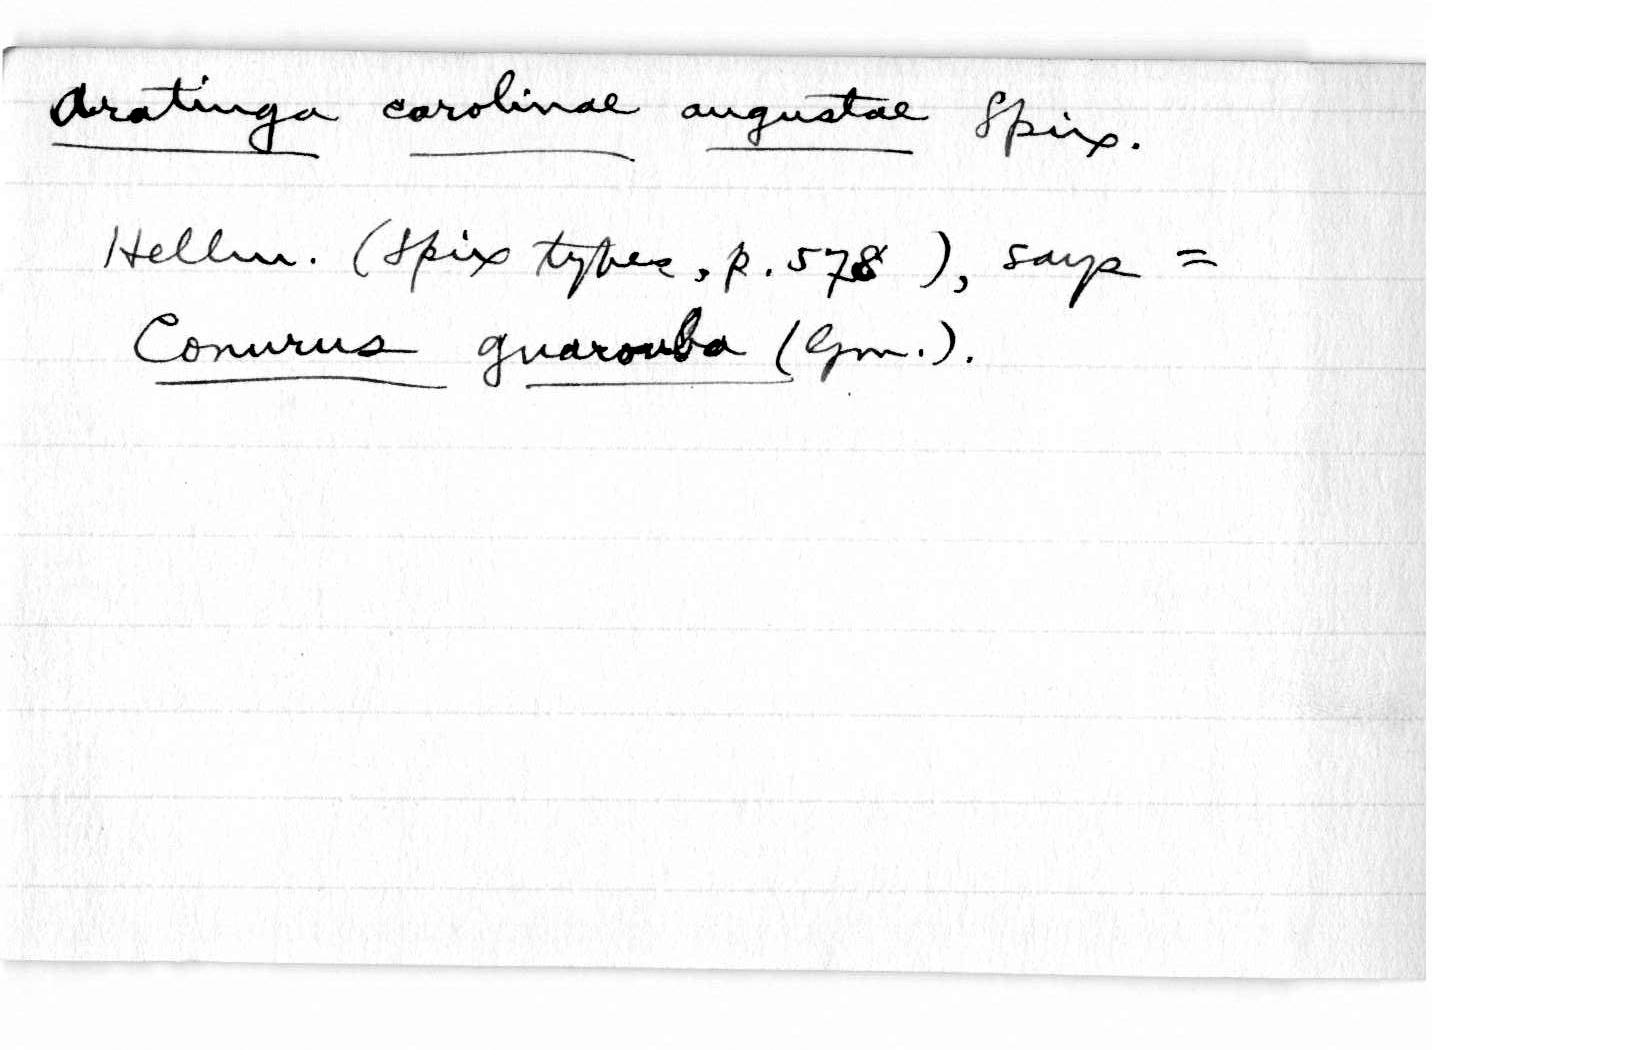 Aratinga carolinae augustae Spix.
Hellm. (Spix types, p. 578), says =
Conurus guarouba (Gm.).